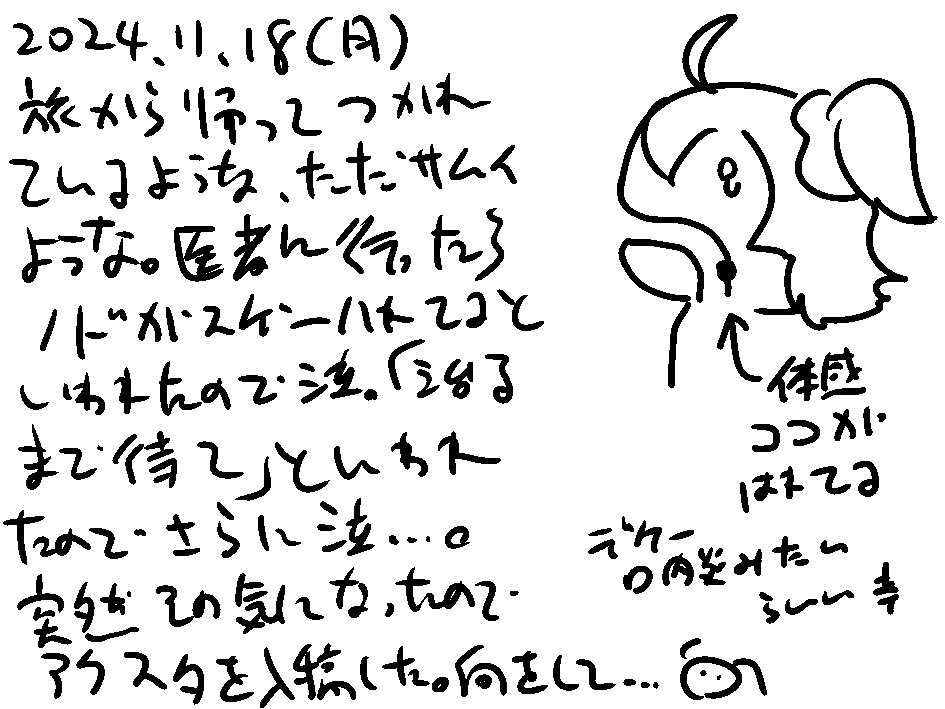 2024.11.18(月)
旅から帰ってつかれ
ているような、ただサムイ
ような。医者に行ったら
ノドがスゲーハれてると
いわれたので泣。「治る
まで待て」といわれ
たのでさらに泣…。
突然その気になったので
アクスタを入稿した。何をして…
体感
ココが
はれてる
デケー
口内炎みたい
らしい